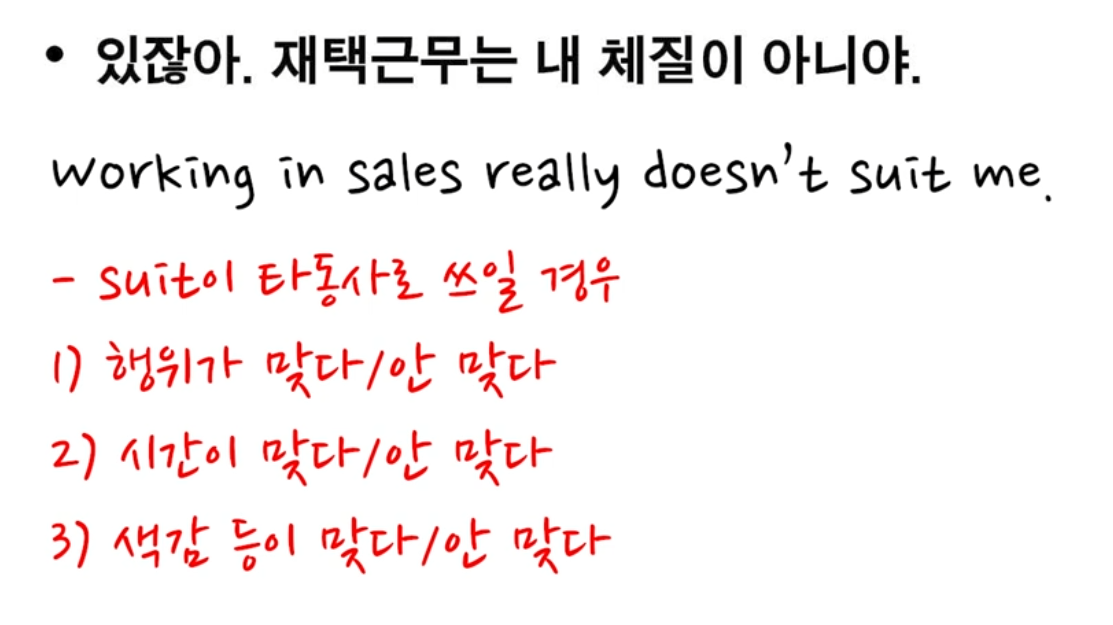 • 있잖아. 재택근무는 내 체질이 아니야.
working in sales really doesn't suit me.
- suit이 타동사로 쓰일 경우
1) 행위가 맞다/안 맞다
2) 시간이 맞다/안 맞다
3) 색감 등이 맞다/안 맞다